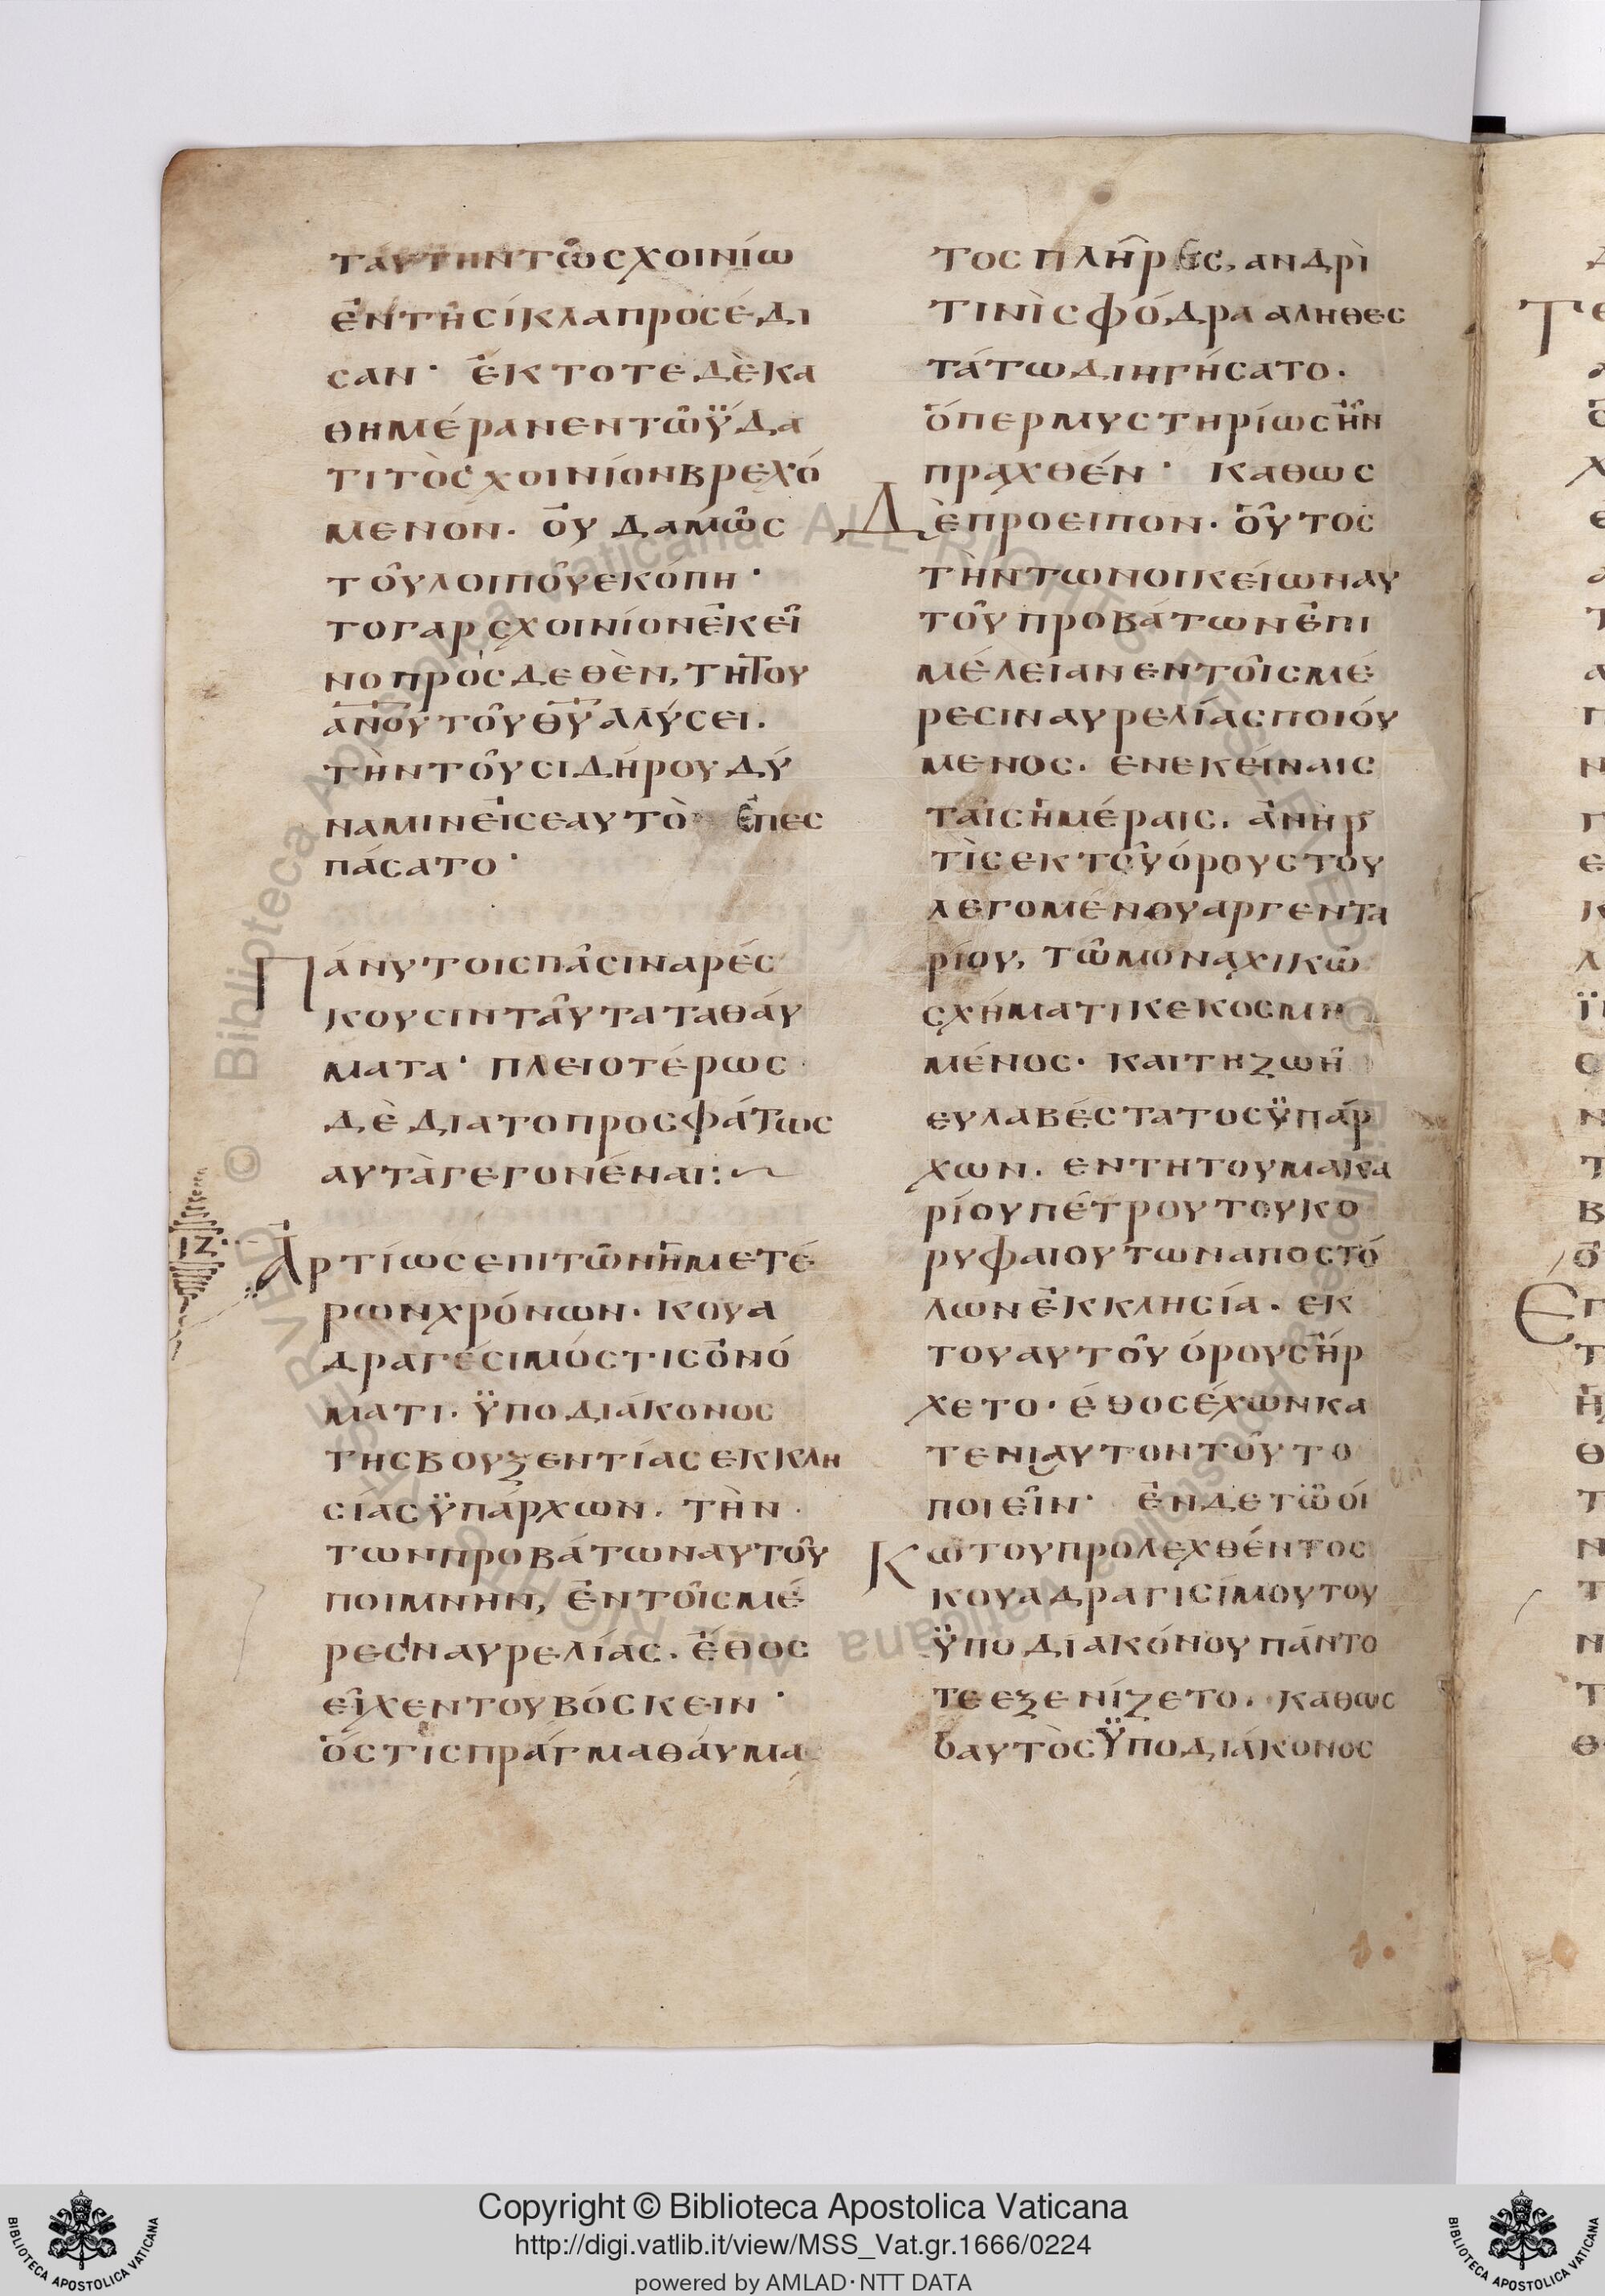 ταύτην τῶ σχοινίω
ἐν τῆ σίκλα προσέδι
σαν· ἐκτοτε δὲ κα
θημέραν εν τῶ ΰδα
τι τὸ σχοινίον βρεχό
μενον. οὐδαμῶς
τοῦ λοιποῦ εκόπη·
το γαρ σχοινίον ἐκεῖ
νο προσδεθὲν, τῆ του
ἀν̅ο̅υ̅ τοῦ θ̅υ̅ ἁλύσει.
τὴν τοῦ σιδήρου δύ
ναμιν εἰς εαυτὸ ἐπεσ
πάσατο·
Πάνυ τοις πᾶσιν αρέσ
κουσιν ταῦτα τα θάυ
ματα· πλειοτέρως
δὲ δια το προσφάτως
αυτὰ γεγονέναι:~
ΙΖ
Ἀρτίως επι τῶν ἡμετέ
ρων χρόνων. κουα
δραγέσιμός τις ὀνό
ματι. ϋποδιάκονος
της βουξεντίας εκκλη
σίας ϋπάρχων. τὴν
των προβάτων αυτοῦ
ποιμνην, ἐν τοῖς μέ
ρεσιν αυρελίας. ἔθος
εῖχεν του βόσκειν·
ὅστις πράγμα θάυμα
τος πλῆρες, ανδρὶ
τινὶ σφόδρα αληθεσ
τάτω διηγήσατο.
ὅπερ μυστηρίως ἦν
πραχθέν· καθως
Δὲ προειπον. οὗτος
τὴν των οικείων αυ
τοῦ προβάτων ἐπι
μέλειαν εν τοῖς μέ
ρεσιν αυρελίας ποιόυ
μενος. εν εκείναις
ταῖς ἡμέραις. ἀνήρ
τὶς εκ τοῦ όρους του
λεγομένου αργεντα
ρίου, τῶ μοναχικῶ
σχήματι κεκοσμη
μένος. και τη ζωῆ
ευλαβέστατος ϋπάρ
χων. εν τη του μακα
ρίου πέτρου του κο
ρυφαιου των αποστό
λων ἐκκλησία. εκ
του αυτοῦ όρους ἤρ
χετο. έθος έχων κα
τ ενιαυτον τοῦτο
ποιεῖν· ἐν δε τῶ οί
Κω του προλεχθέντος
κουαδραγισίμου του
ϋποδιακόνου πάντο
τε εξενίζετο. καθως
ὁ αυτὸς ϋποδιάκονος
Copyright © Biblioteca Apostolica Vaticana
http://digi.vatlib.it/view/MSS_Vat.gr.1666/0224
powered by AMLAD·NTT DATA
BIBLIOTECA APOSTOLICA VATICANA
BIBLIOTECA APOSTOLICA VATICANA